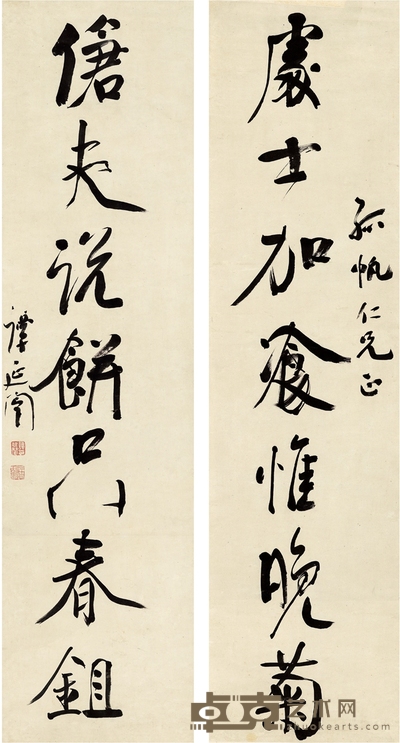 處士加餐惟晚菊
孤帆仁兄正
傖夫說餅只春鉏
譚延闓
卓克艺术网
zhuokearts.com